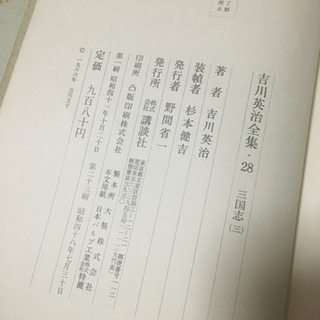 吉川英治全集・28
三国志(三)
著者 吉川英治
装幀者 杉本健吉
発行者 野間省一
発行所 株式会社 講談社
印刷所 凸版印刷株式会社
製本所 大製株式会社
本文用紙 日本パルプ工業株式会社特漉
第一刷 昭和四十一年十月二十日
第二十三刷 昭和四十八年七月三十日
定価 九百八十円